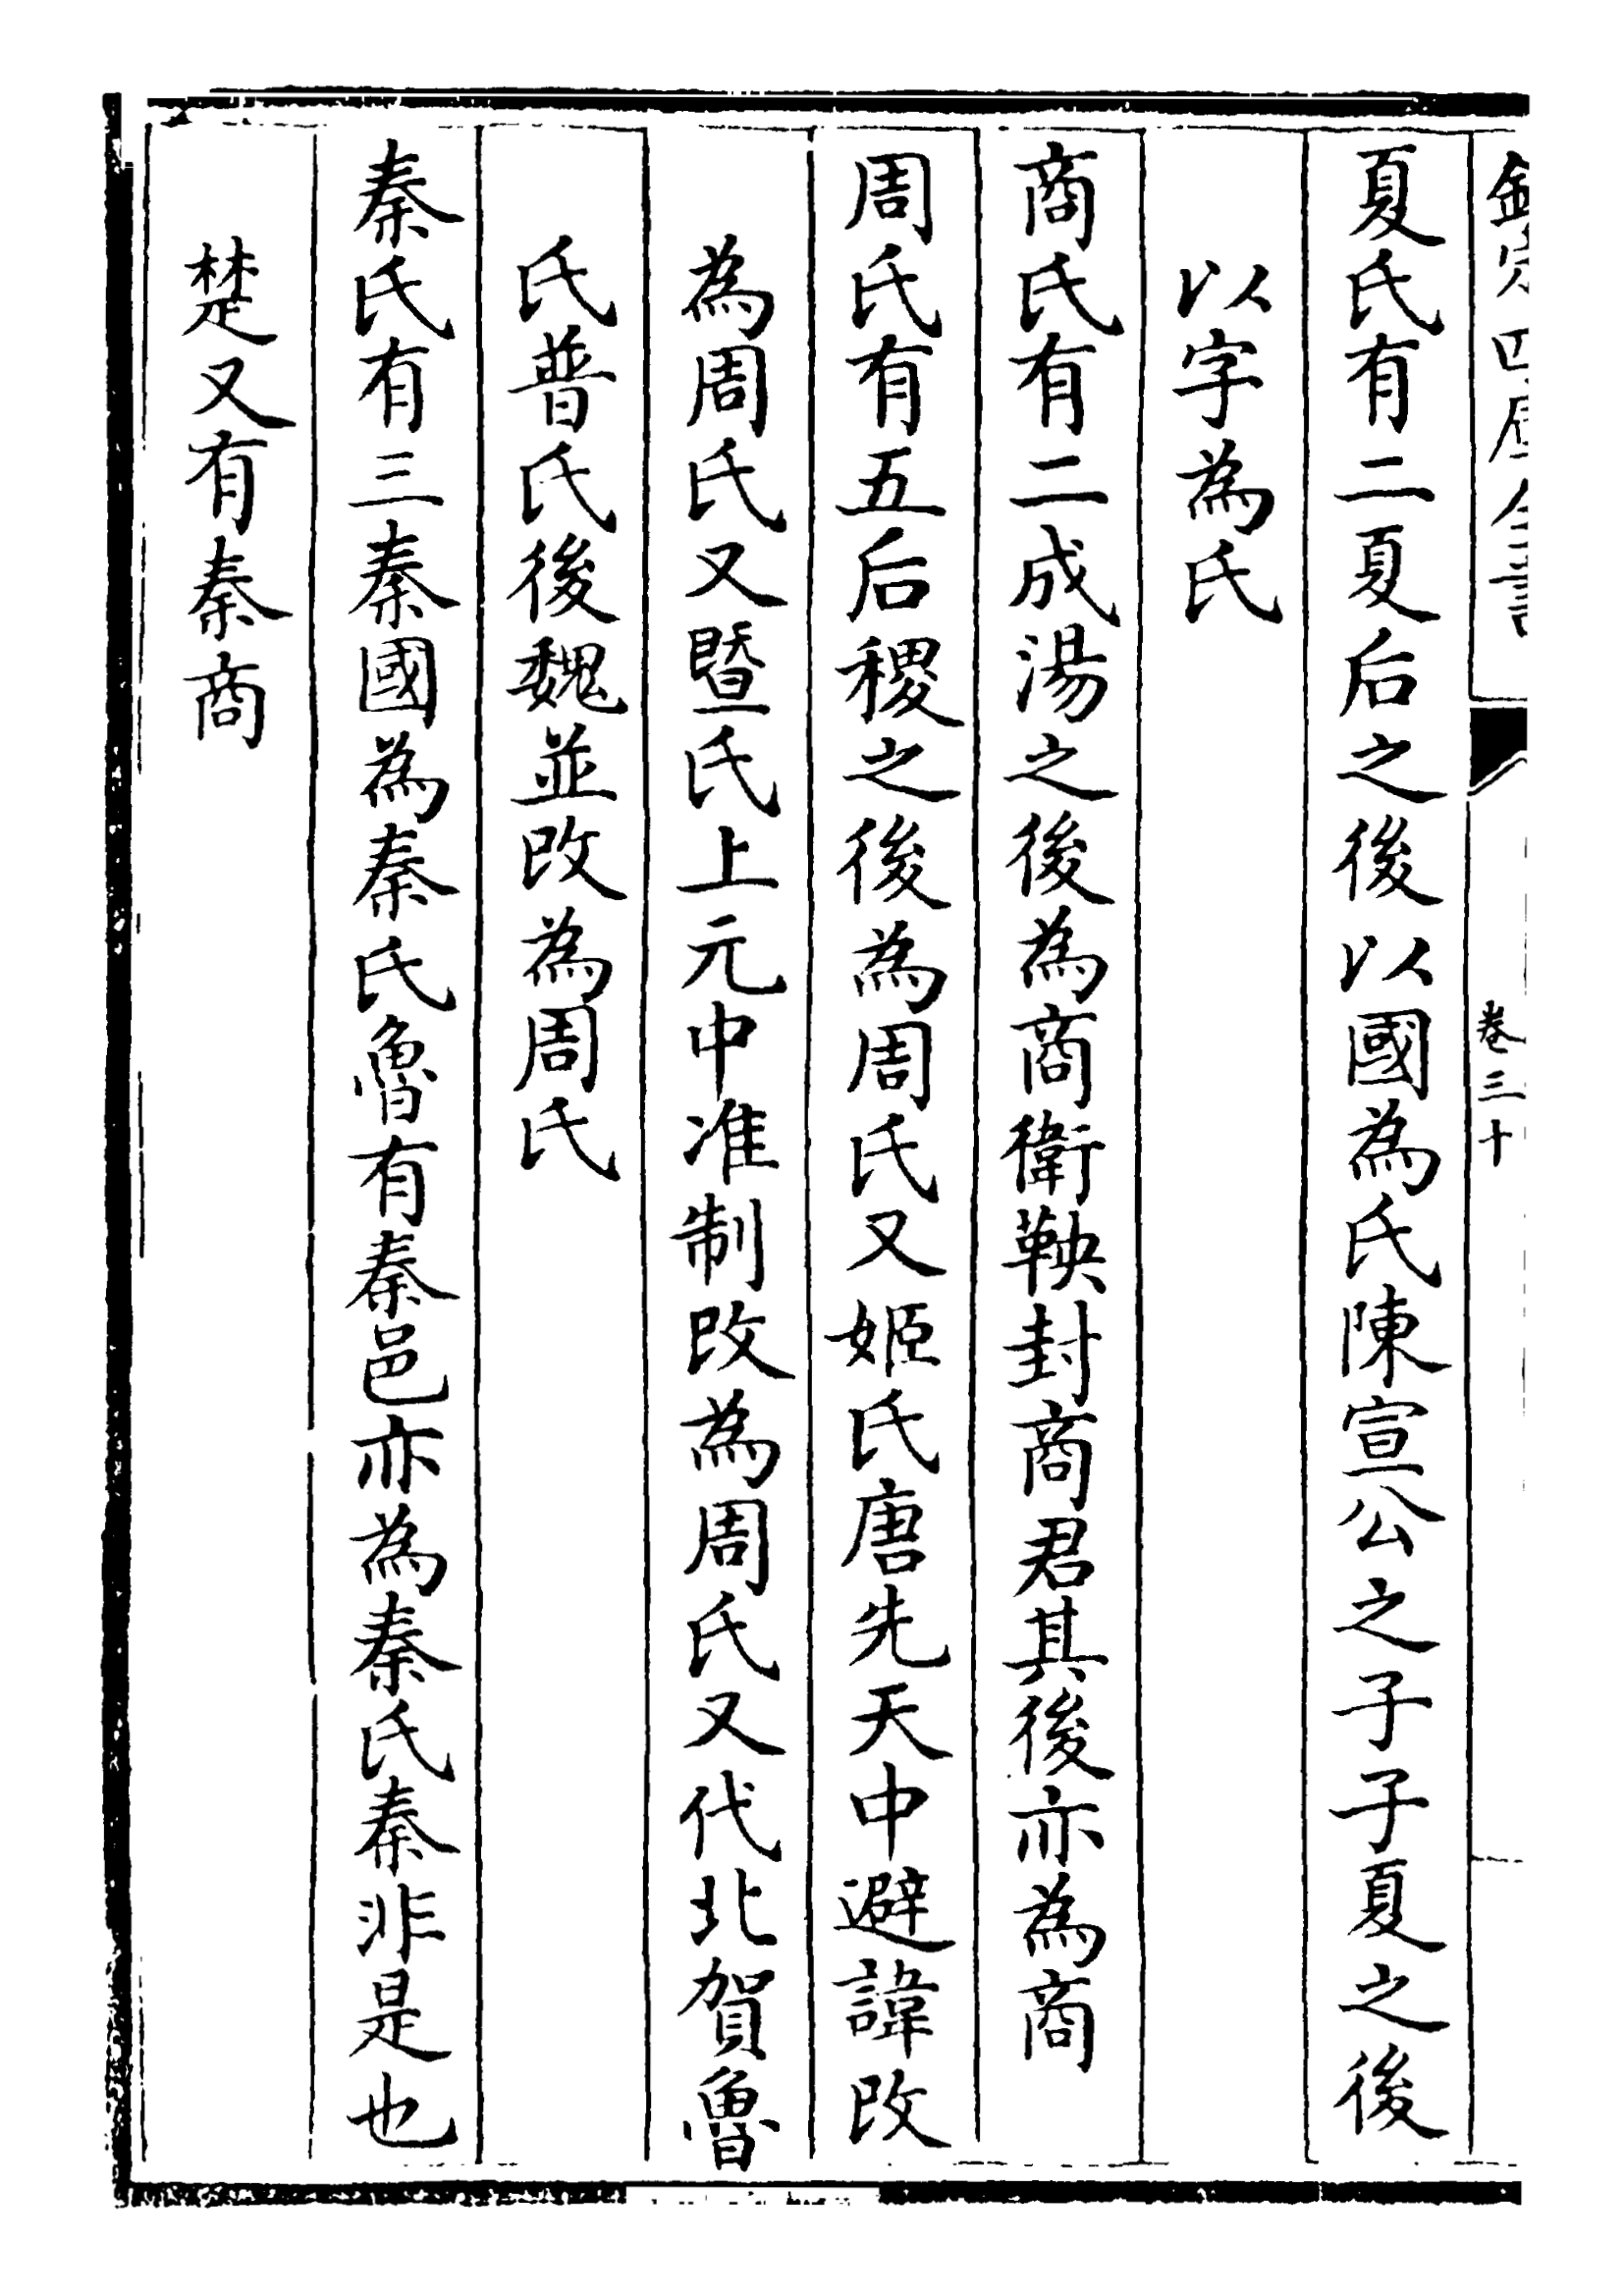 欽定四庫全書
卷三十
夏氏有二夏后之後以國為氏陳宣公之子子夏之後
以字為氏
商氏有二成湯之後為商衛鞅封商君其後亦為商
周氏有五后稷之後為周氏又姬氏唐先天中避諱改
為周氏又暨氏上元中准制改為周氏又代北賀魯
氏普氏後魏並改為周氏
秦氏有三秦國為秦氏魯有秦邑亦為秦氏秦非是也
楚又有秦商